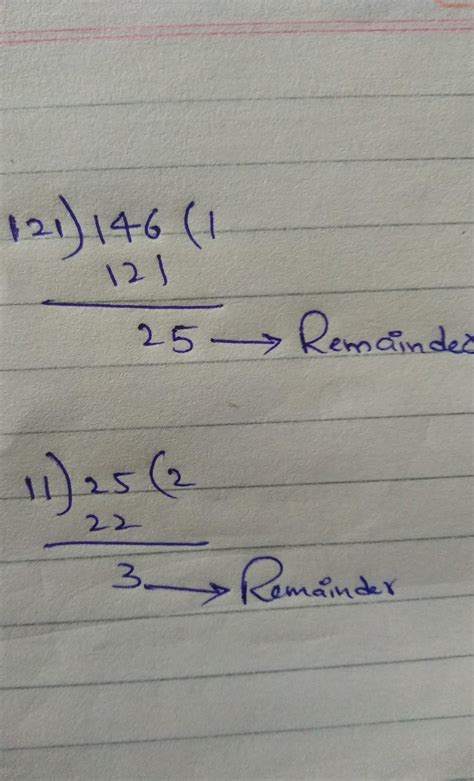 121)146(1
121
25 → Remainder
11)25(2
22
3 → Remainder